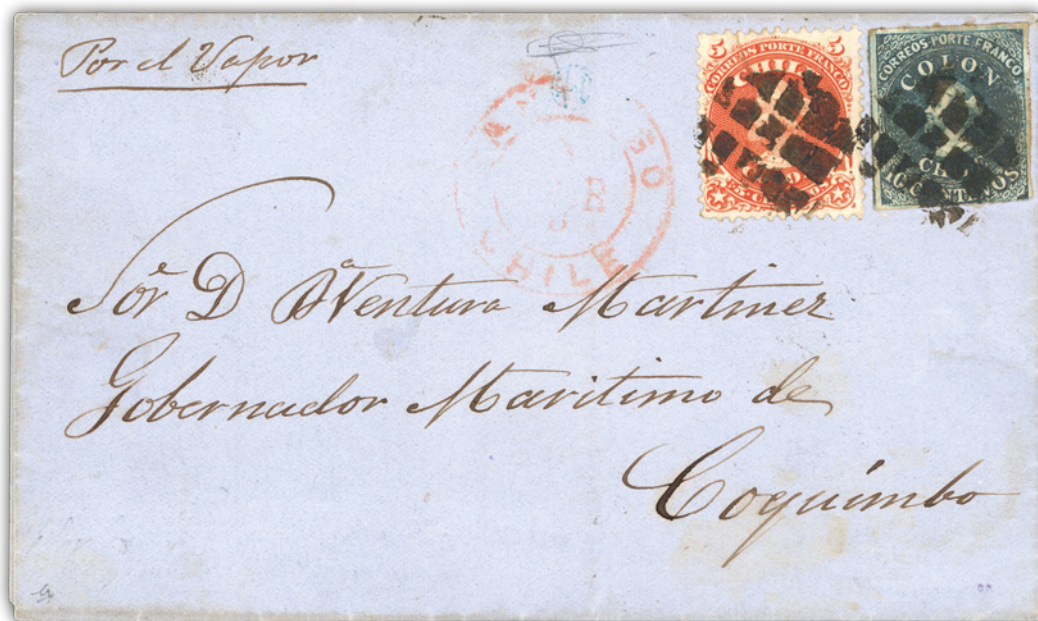 Por el Vapor
5 5
CORREOS PORTE FRANCO
CHILE
CENTAVOS
CORREOS PORTE FRANCO
COLON
CHILE
10 CENTAVOS
CHILE
Sor. D Bª Ventura Martinez
Gobernador Maritimo de
Coquimbo